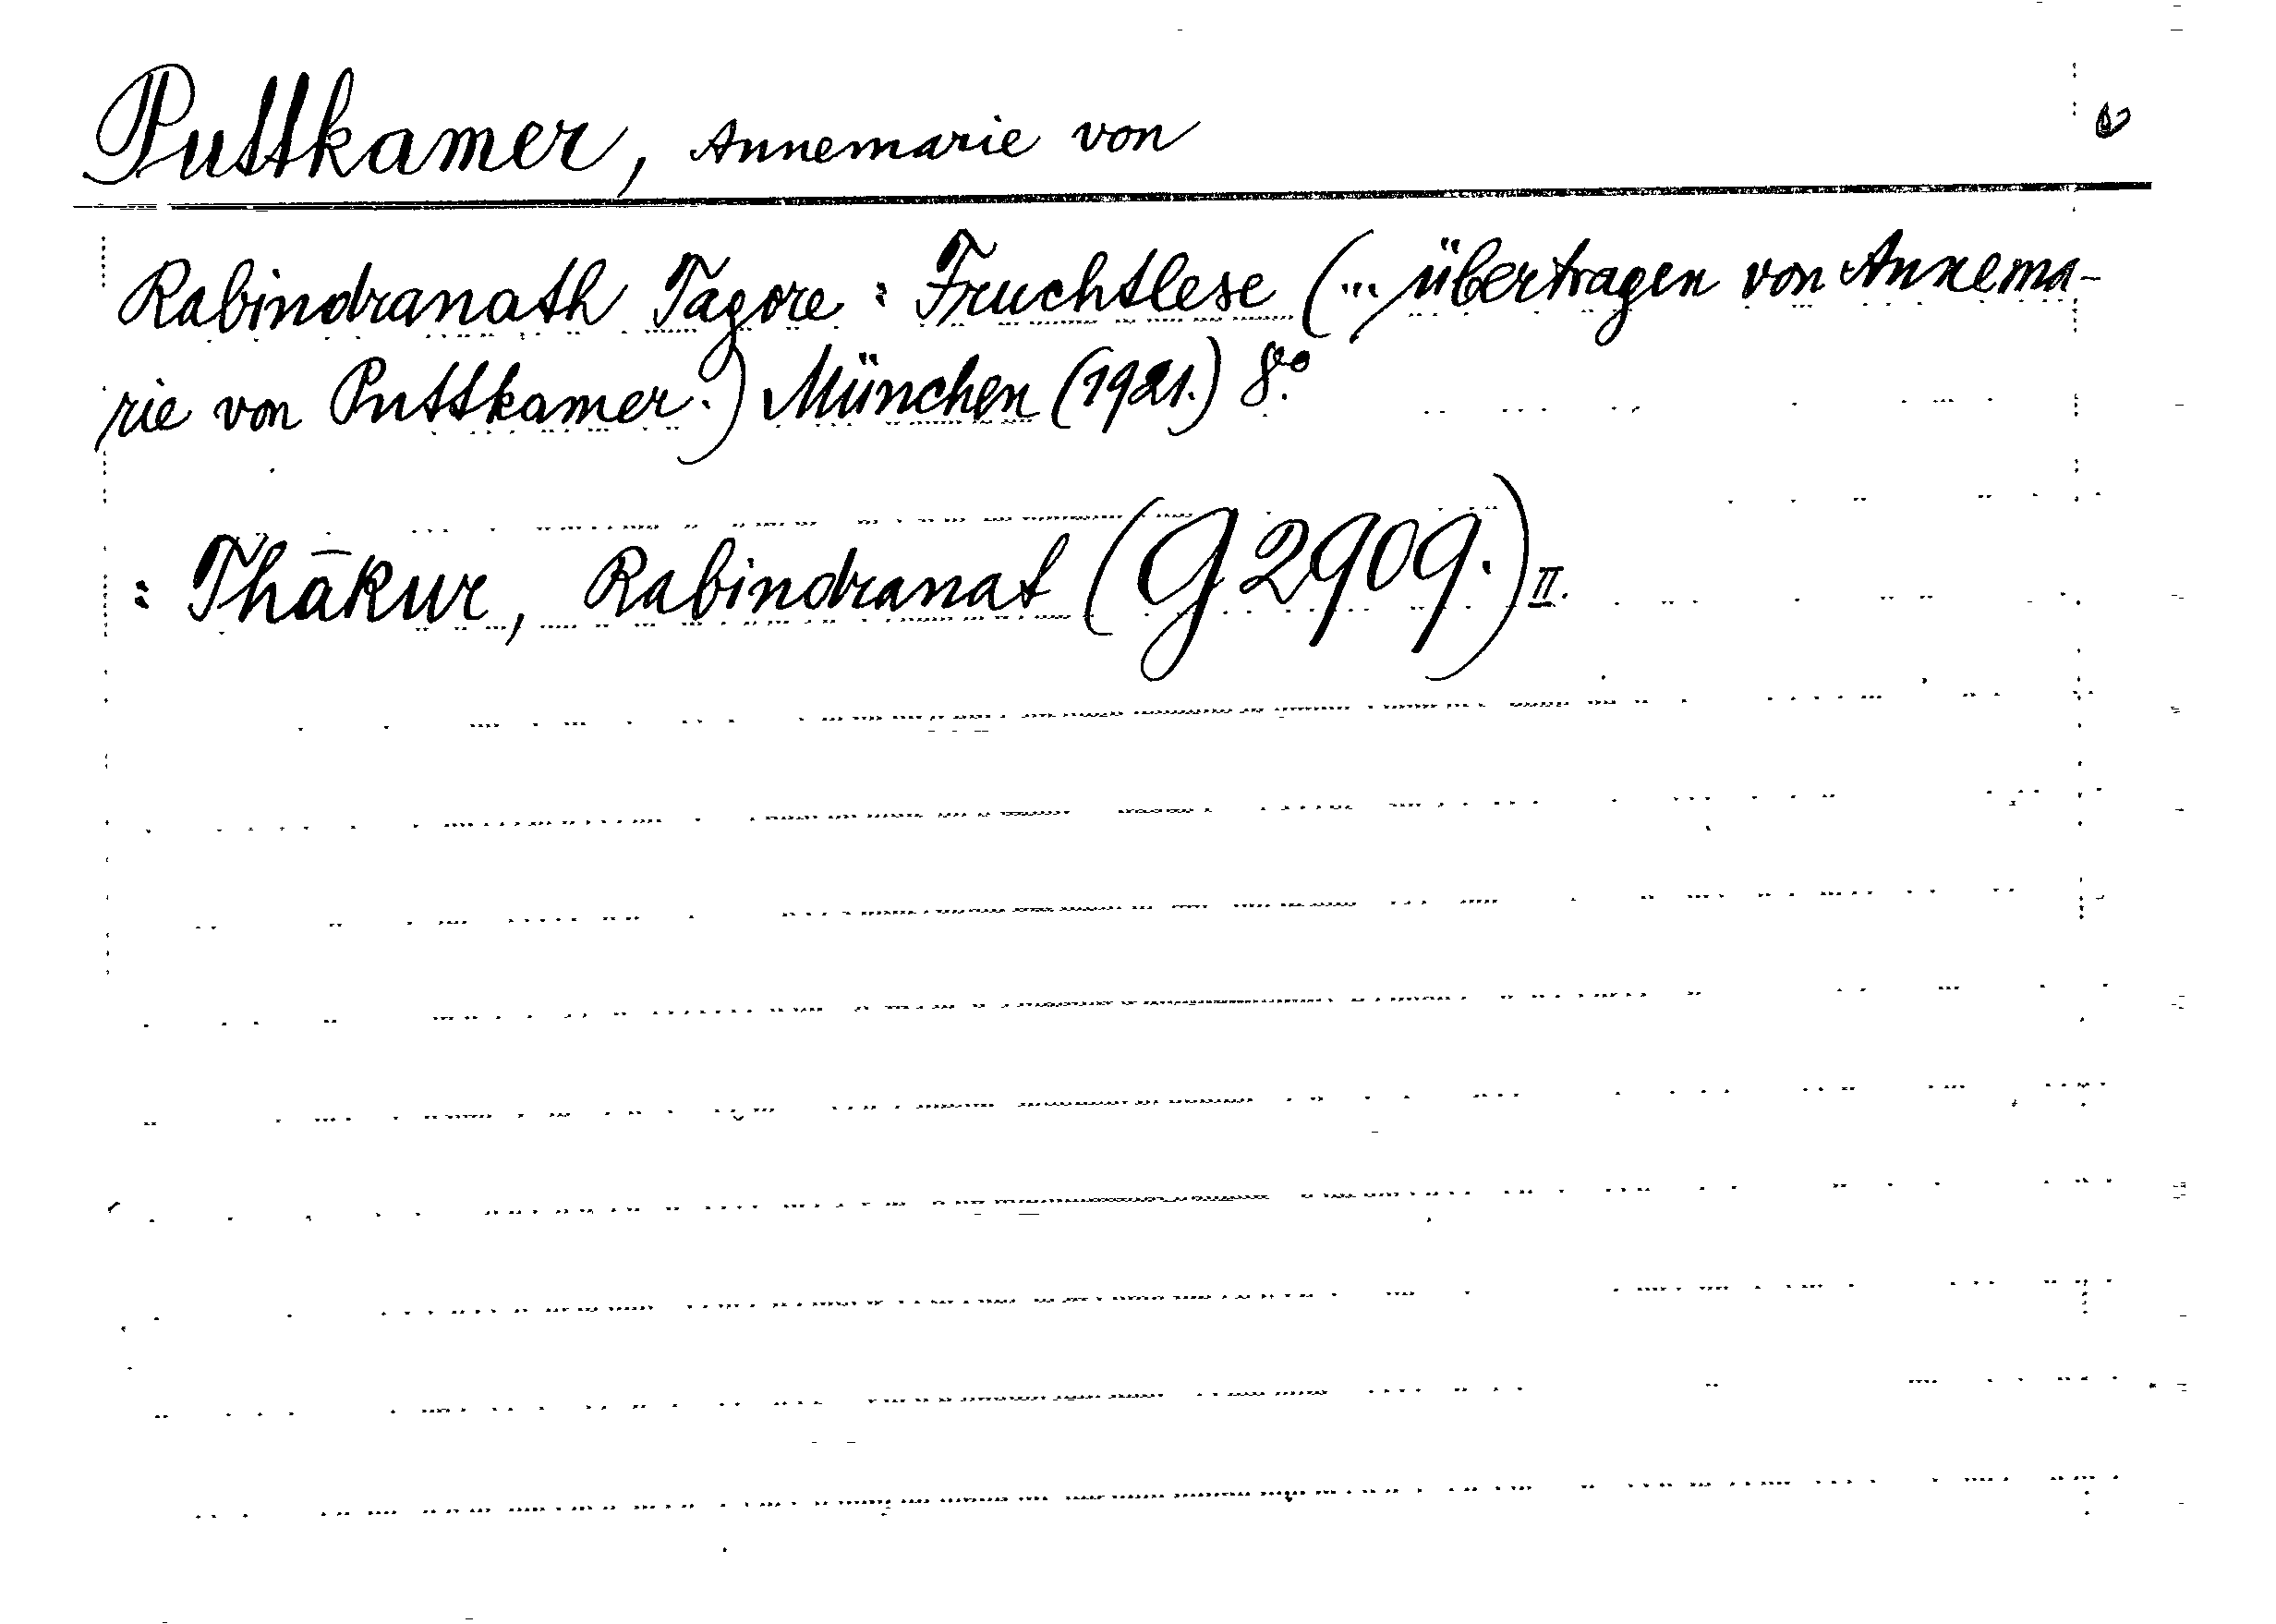 Puttkamer, Annemarie von
Rabindranath Tagore : Fruchtlese (... übertragen von Annema-
rie von Puttkamer.) München (1921.) 8°.
: Thākur, Rabindranat (G 2909.) II.